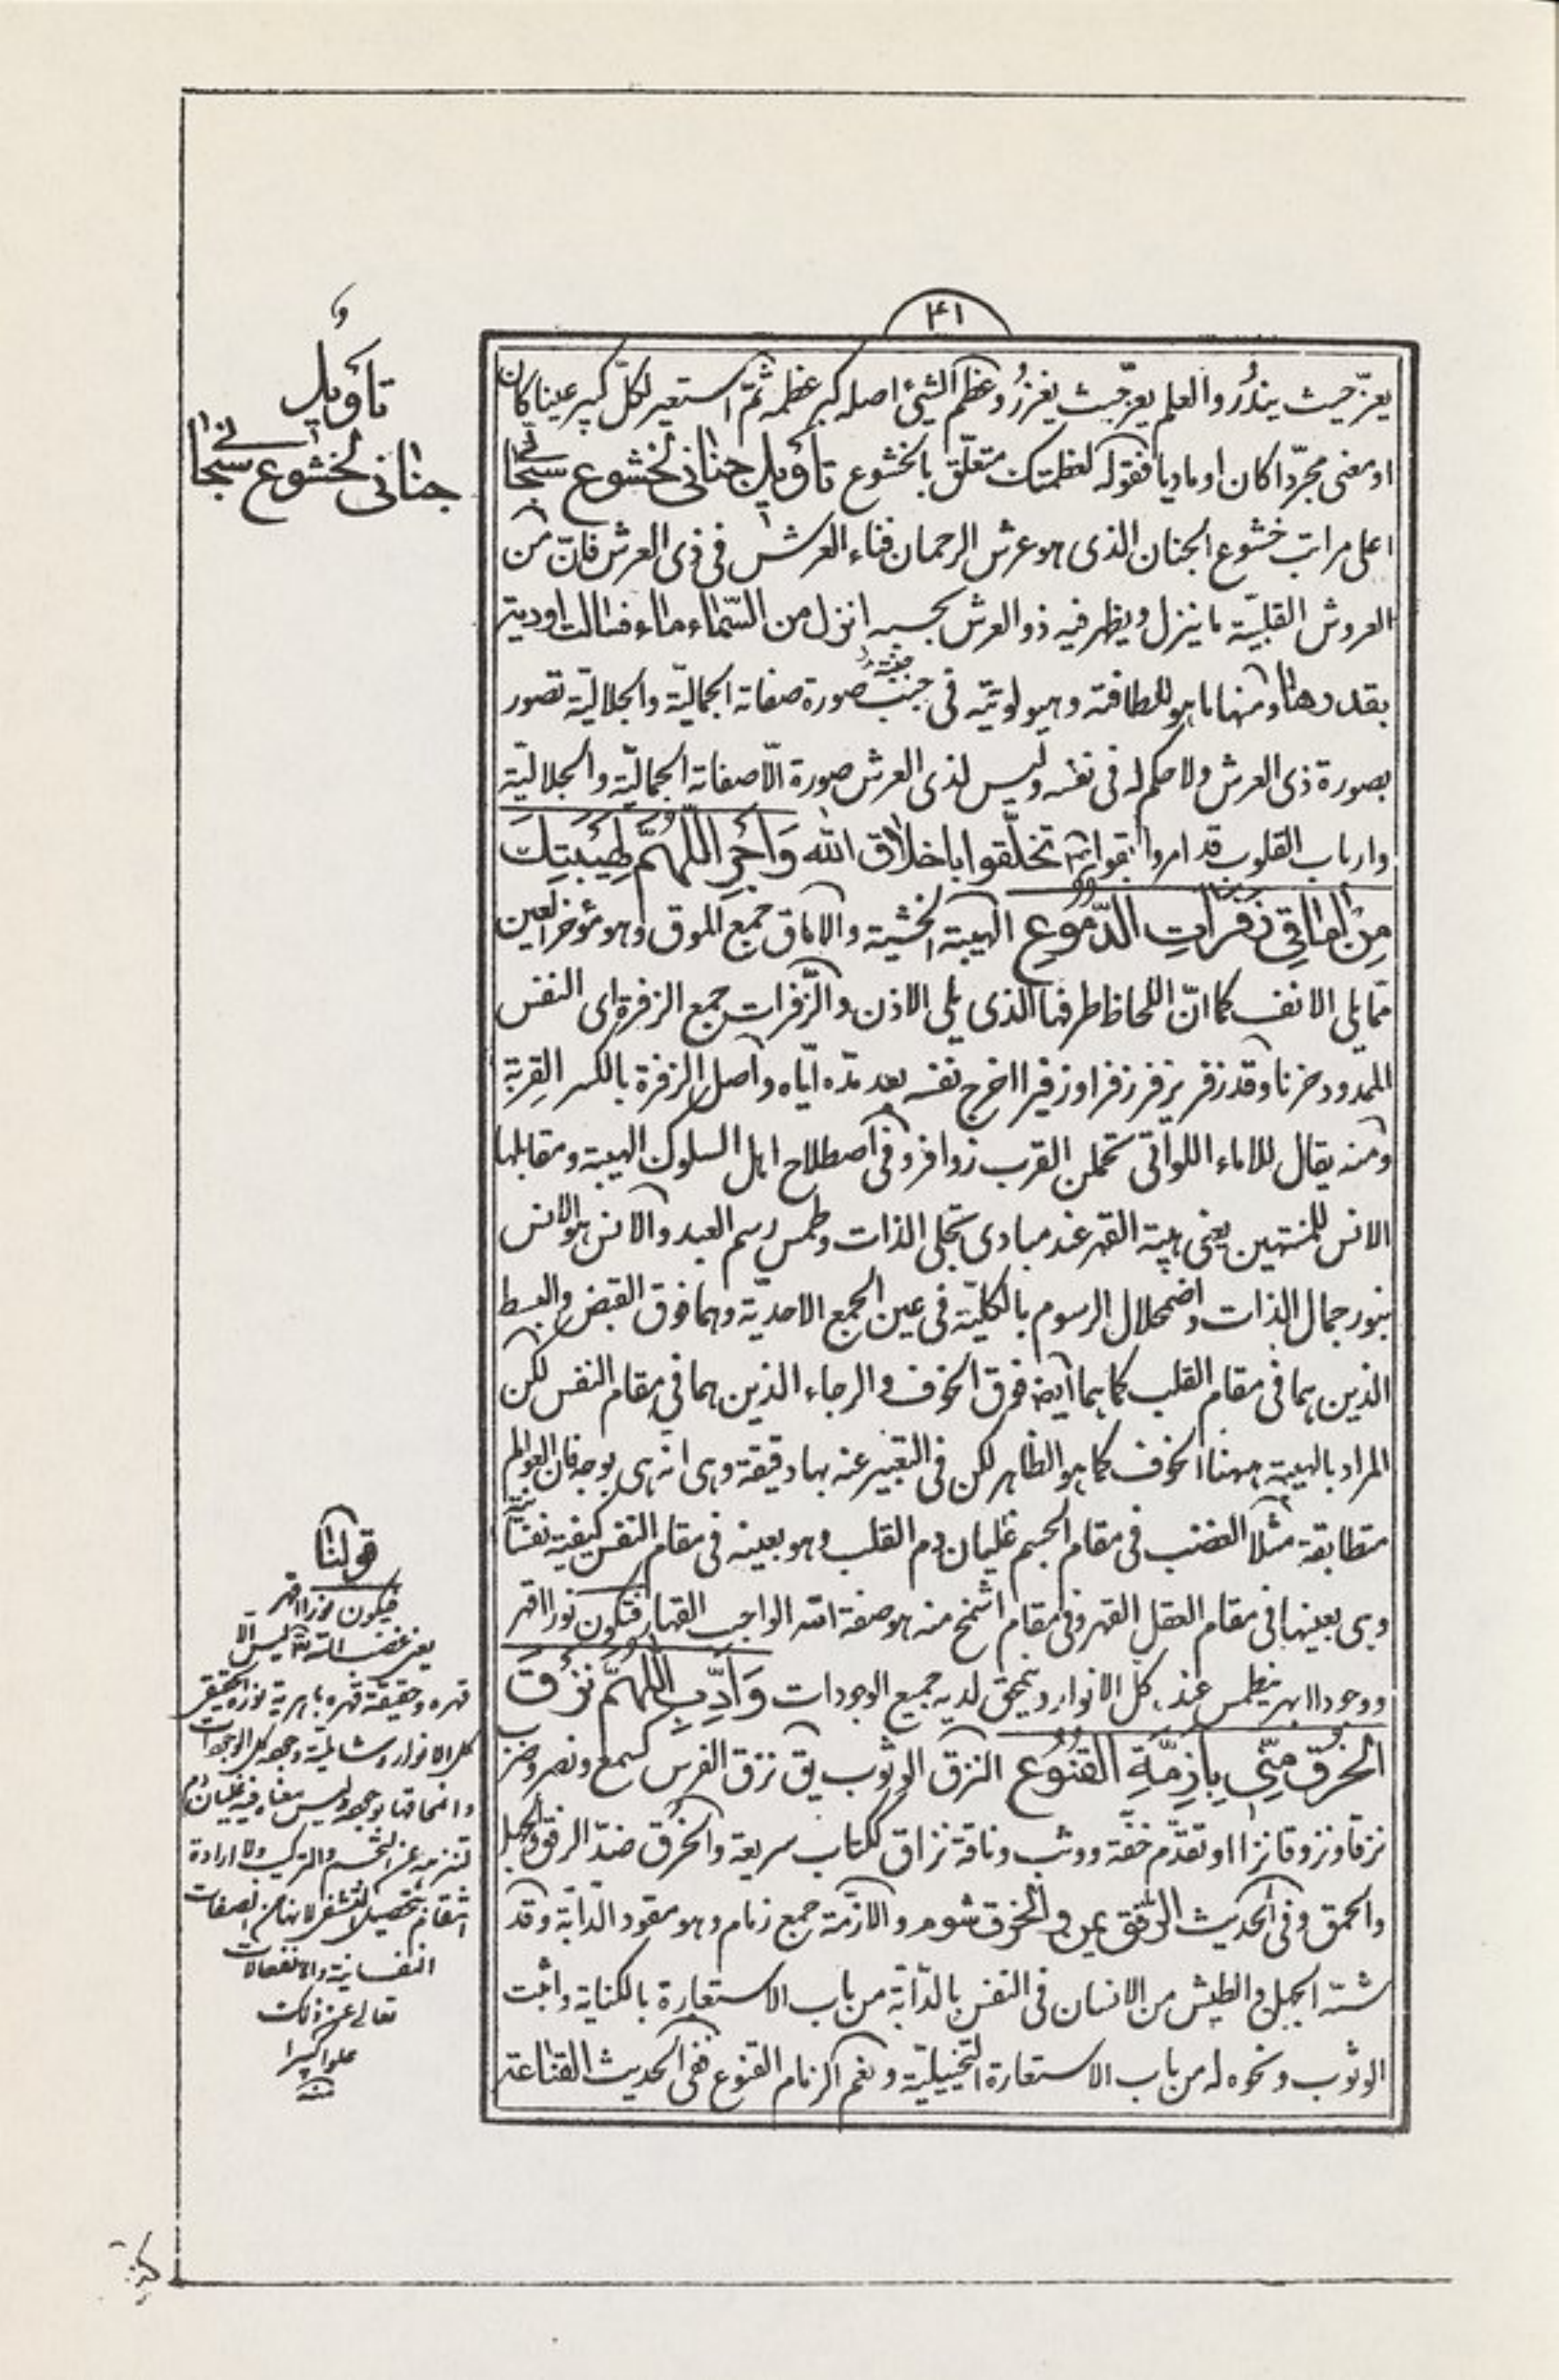 ۴۱
يعزّ حيث يندُر والعلم يعزّ حيث يغزُر وعظم الشیٔ اصله كبر عظمه ثمّ استعير لكلّ كبير عينا كان
او معنى مجرّدا كان او ماديا فقوله لعظمتك متعلّق بالخشوع تأويل جنانى لخشوع سبحانى
اعلى مراتب خشوع الجنان الذى هو عرش الرحمان فناء العرش فى ذى العرش فانّ من
العروش القلبيّة ما ينزل ويظهر فيه ذو العرش بحسبه انزل من السّماء ماء فسالت اودية
بقدرها ومنها ما هو للطافته وهيولويّته فى جنب صورة صفاته الجماليّة والجلاليّة تصور
بصورة ذى العرش ولا حكم له فى نفسه وليس لذى العرش صورة الّا صفاته الجماليّة والجلاليّة
وارباب القلوب قد امروا بقوله تخلّقوا باخلاق الله وَأَجْرِ اللّهُمَّ لِهَيْبَتِكَ
مِنْ اماقِي زَفَراتِ الدُّمُوعِ الهيبة الخشية والاماق جمع الموق وهو مؤخر العين
ممّا يلى الانف كما انّ اللحاظ طرفها الذى يلى الاذن والزّفرات جمع الزفرة اى النفس
الممدود حزنا وقد زفر يزفر زفرا وزفيرا اخرج نفسه بعد مدّه ايّاه واصل الزفرة بالكسر القِربة
ومنه يقال للاماء اللواتى تحملن القرب زوافر وفى اصطلاح اهل السلوك الهيبة ومقابلها
الانس للمنتهين يعنى هيبة القهر عند مبادى تجلى الذات وطمس رسم العبد والانس هو الانس
بنور جمال الذات واضمحلال الرسوم بالكليّة فى عين الجمع الاحديّة وهما فوق القبض والبسط
الذين هما فى مقام القلب كما هما ايضا فوق الخوف والرجاء الذين هما فى مقام النفس لكن
المراد بالهيبة ههنا الخوف كما هو الظاهر لكن فى التعبير عنه بها دقيقة وهى انه هى بوجه فان العوالم
متطابقة مثلا الغضب فى مقام الجسم غليان دم القلب وهو بعينه فى مقام النفس كيفية نفسانيّة
وهى بعينها فى مقام العقل القهر وفى مقام اشمخ منه هو صفة الله الواجب القهار فتكون نورا اقهر
ووجودا ابهر ينطمس عنده كل الانوار ويتمحق لديه جميع الوجودات وَأَدِّبِ اللّهُمَّ نَزَقَ
الخُرْقِ مِنّي بِأَزِمَّةِ القُنُوعِ النزق الوثوب يق نزق الفرس كسمع ونصر وضرب
نزقا ونزوقا نزا او تقدّم خفّة ووثب وناقة نزاق ككتاب سريعة والخرق ضدّ الرفق والجهل
والحمق وفى الحديث الرفق يمن والخرق شوم والازمّة جمع زمام وهو مقود الدابّة وقد
شبّه الجهل والطيش من الانسان فى النفس بالدّابّة من باب الاستعارة بالكناية واثبت
الوثوب ونحوه له من باب الاستعارة التخييليّة ونعم الزمام القنوع ففى الحديث القناعة
و
تأويل
جنانى لخشوع سبحانى
قولنا
فيكون نورا اقهر
يعنى غضب الله تعالى ليس الا
قهره وحقيقة قهره باهرية نوره الحقيقى
كل الانوار وجهه كل الوجودات
وليس معناه فيه غليان دم
لتنزهه عن التجسم والتركيب ولا ارادة
انتقام لتحصيل التشفى الصفات
النفسانية والانفعالات
تعالى عن ذلك
علوا كبيرا
منه